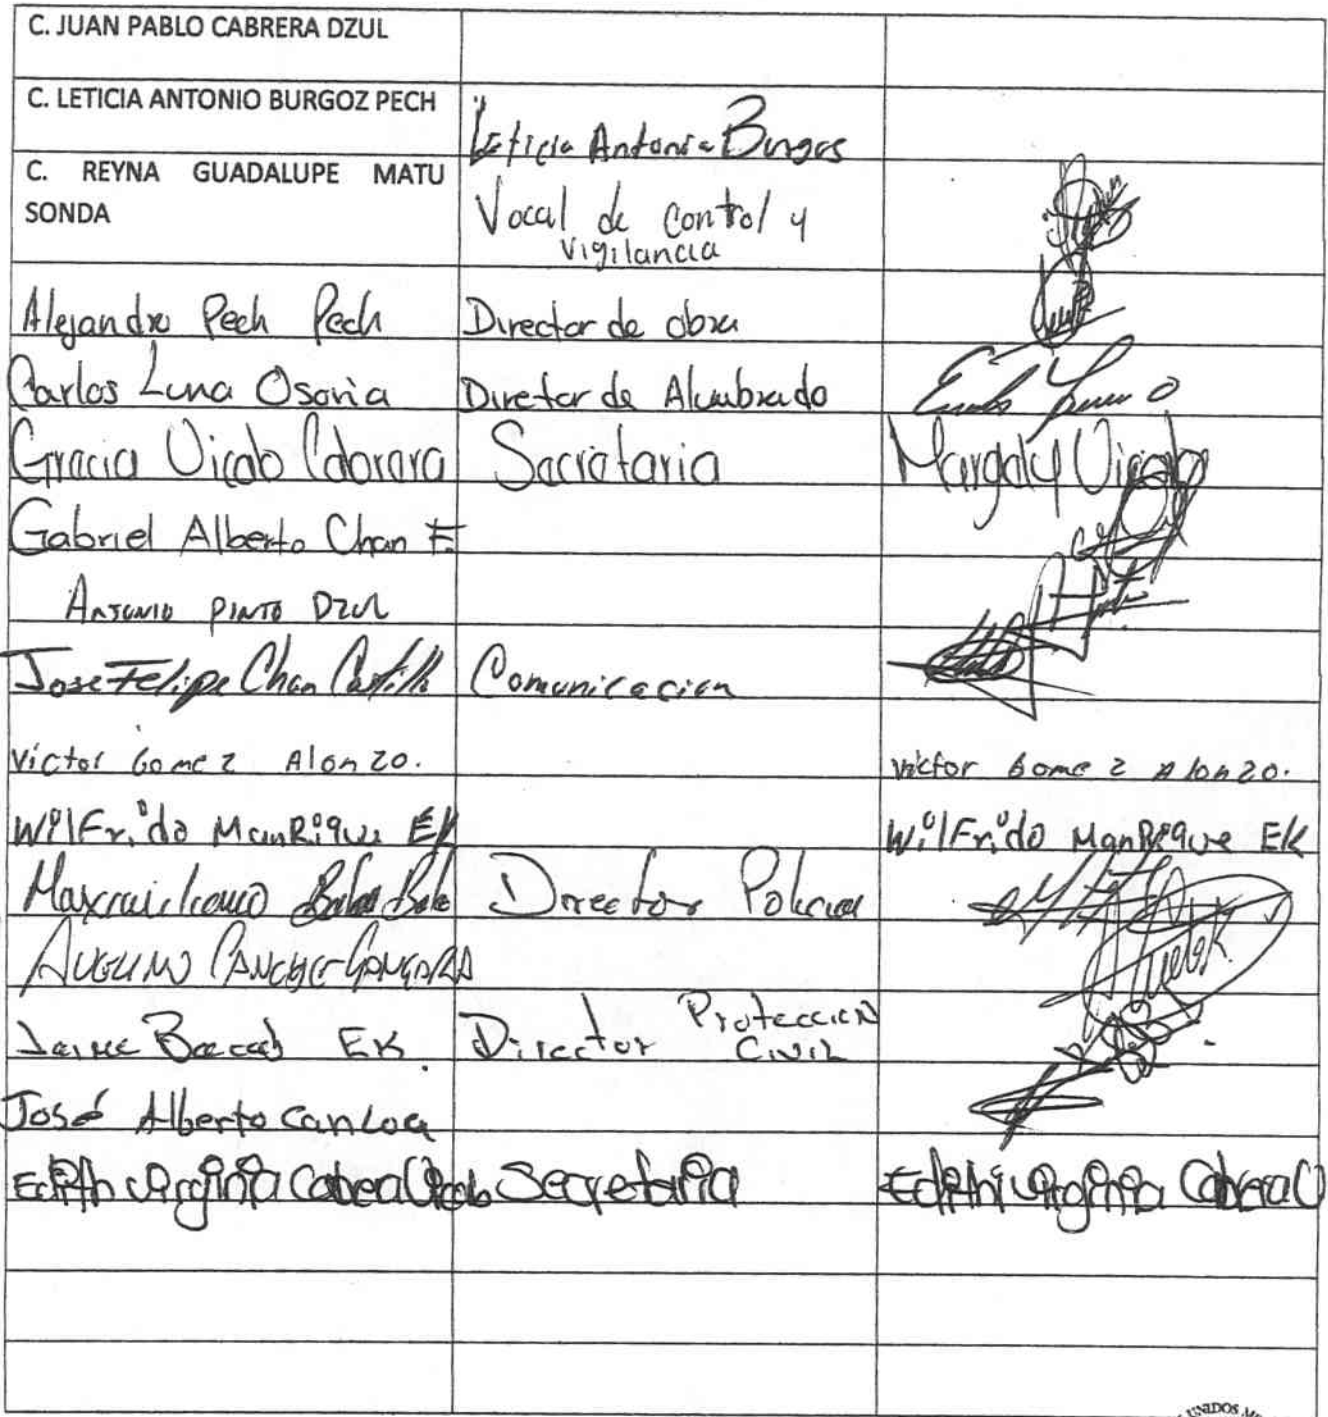 C. JUAN PABLO CABRERA DZUL
C. LETICIA ANTONIO BURGOZ PECH
Leticia Antonia Burgos
C. REYNA GUADALUPE MATU
SONDA
Vocal de control y
vigilancia
Alejandro Pech Pech Director de obra
Carlos Luna Osoria Diretor de Alumbrado
Gracia Uicab Secretaria Margaly Uicab
Gabriel Alberto Chan F.
Antonio PINTO DZUL
Jose Felipe Chan Castillo Comunicacion
Victor Gomez Alonzo. Victor Gomez Alonzo.
Wilfrido ManRique EK Wilfrido ManRique EK
Maxmiliano Director Policia
Jaime EK. Director Protección
Civil
José Alberto Can
Edith virginia Cabrera Uicab Secretaria Edith virginia Cabrera U
UNIDOS